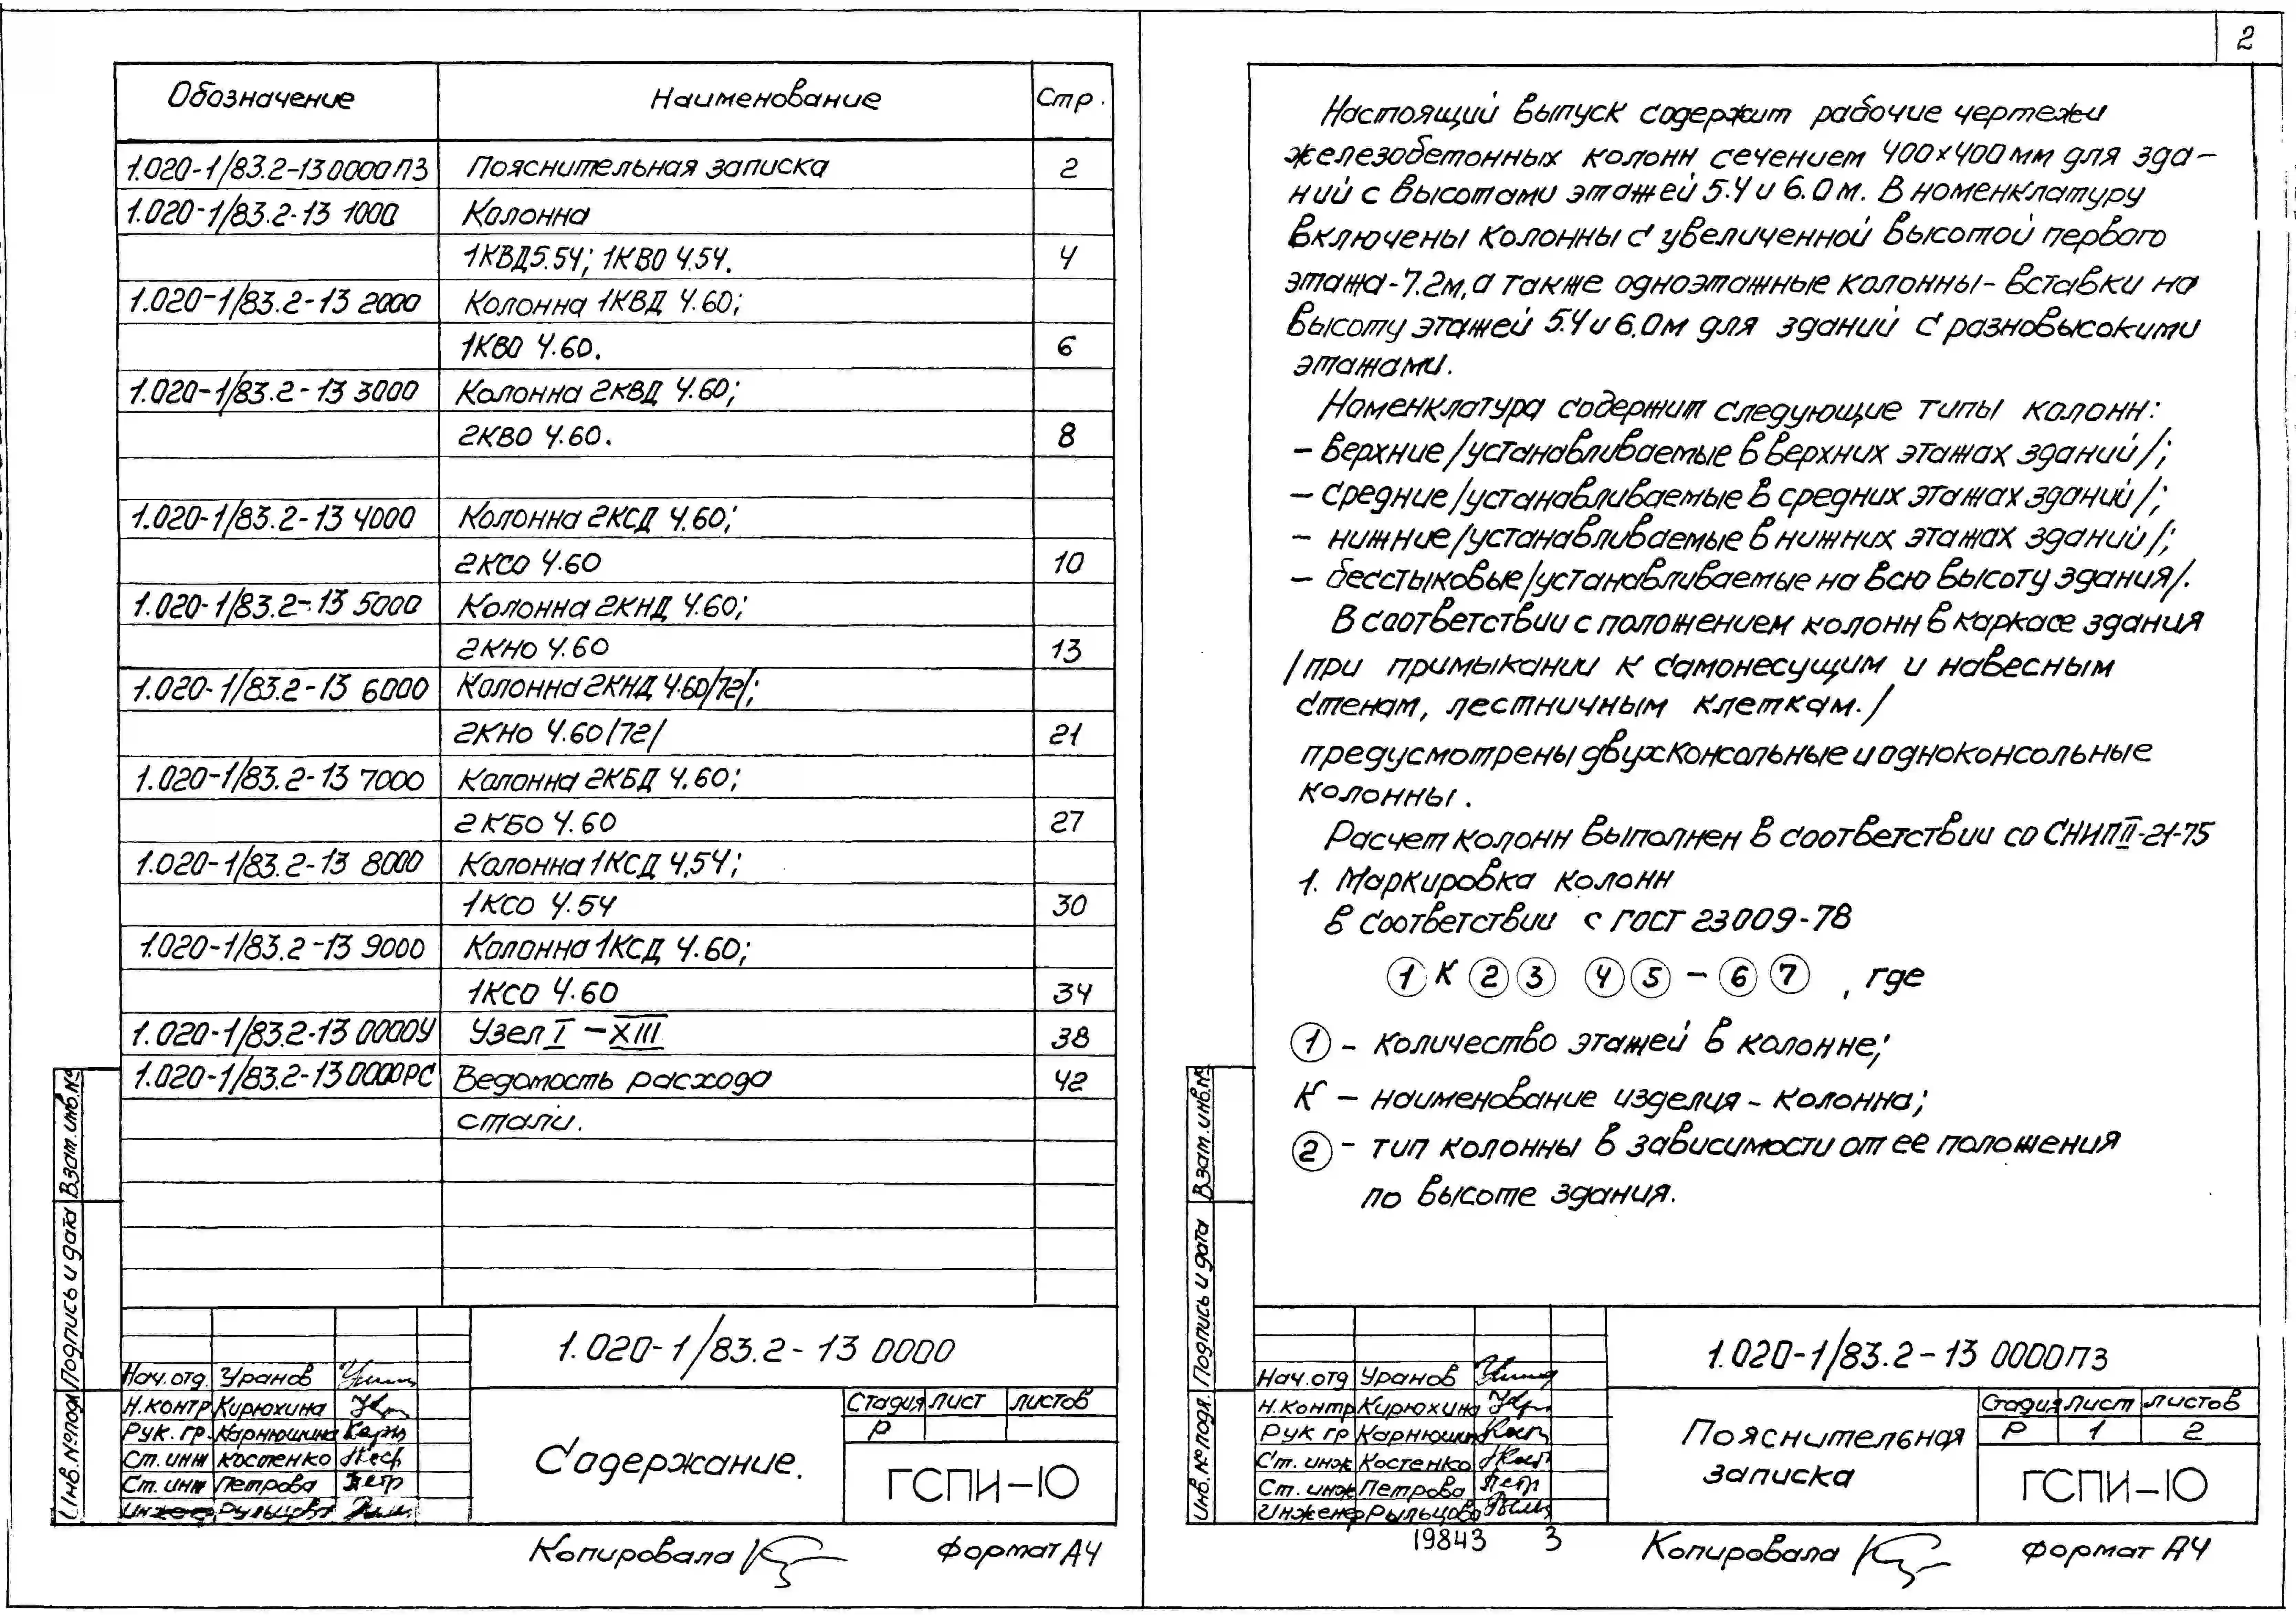 Обозначение Наименование Стр.
1.020-1/83.2-13 0000ПЗ Пояснительная записка 2
1.020-1/83.2-13 1000 Колонна
1КВД5.54; 1КВО 4.54. 4
1.020-1/83.2-13 2000 Колонна 1КВД 4.60;
1КВО 4.60. 6
1.020-1/83.2-13 3000 Колонна 2КВД 4.60;
2КВО 4.60. 8
1.020-1/83.2-13 4000 Колонна 2КСД 4.60;
2КСО 4.60 10
1.020-1/83.2-13 5000 Колонна 2КНД 4.60;
2КНО 4.60 13
1.020-1/83.2-13 6000 Колонна 2КНД 4.60/72/;
2КНО 4.60/72/ 21
1.020-1/83.2-13 7000 Колонна 2КБД 4.60;
2КБО 4.60 27
1.020-1/83.2-13 8000 Колонна 1КСД 4.54;
1КСО 4.54 30
1.020-1/83.2-13 9000 Колонна 1КСД 4.60;
1КСО 4.60 34
1.020-1/83.2-13 0000У Узел I – XIII 38
1.020-1/83.2-13 0000РС Ведомость расхода 42
стали.
Инв.№подл. Подпись и дата Взам.инв.№
1.020-1/83.2-13 0000
Нач.отд. Уранов
Н.контр Кирюхина
Рук.гр. Карнюшина
Ст.инж Костенко
Ст.инж Петрова
Инженер Рыльцова
Содержание.
Стадия Лист Листов
Р
ГСПИ-10
Копировала Формат А4
2
Настоящий выпуск содержит рабочие чертежи
железобетонных колонн сечением 400х400мм для зда-
ний с высотами этажей 5.4 и 6.0м. В номенклатуру
включены колонны с увеличенной высотой первого
этажа-7.2м, а также одноэтажные колонны-вставки на
высоту этажей 5.4 и 6.0м для зданий с разновысокими
этажами.
Номенклатура содержит следующие типы колонн:
– верхние /устанавливаемые в верхних этажах зданий/;
– средние /устанавливаемые в средних этажах зданий/;
– нижние /устанавливаемые в нижних этажах зданий/;
– бесстыковые /устанавливаемые на всю высоту здания/.
В соответствии с положением колонн в каркасе здания
/при примыкании к самонесущим и навесным
стенам, лестничным клеткам./
предусмотрены двухконсольные и одноконсольные
колонны.
Расчет колонн выполнен в соответствии со СНИП II-21-75
1. Маркировка колонн
в соответствии с ГОСТ 23009-78
1 К 2 3 4 5 – 6 7 , где
1 – количество этажей в колонне;
К – наименование изделия – колонна;
2 – тип колонны в зависимости от ее положения
по высоте здания.
Инв.№подл. Подпись и дата Взам.инв.№
1.020-1/83.2-13 0000ПЗ
Нач.отд Уранов
Н.контр Кирюхина
Рук гр Карнюшина
Ст.инж Костенко
Ст.инж Петрова
Инженер Рыльцова
Пояснительная
записка
Стадия Лист Листов
Р 1 2
ГСПИ-10
19843 3
Копировала Формат А4